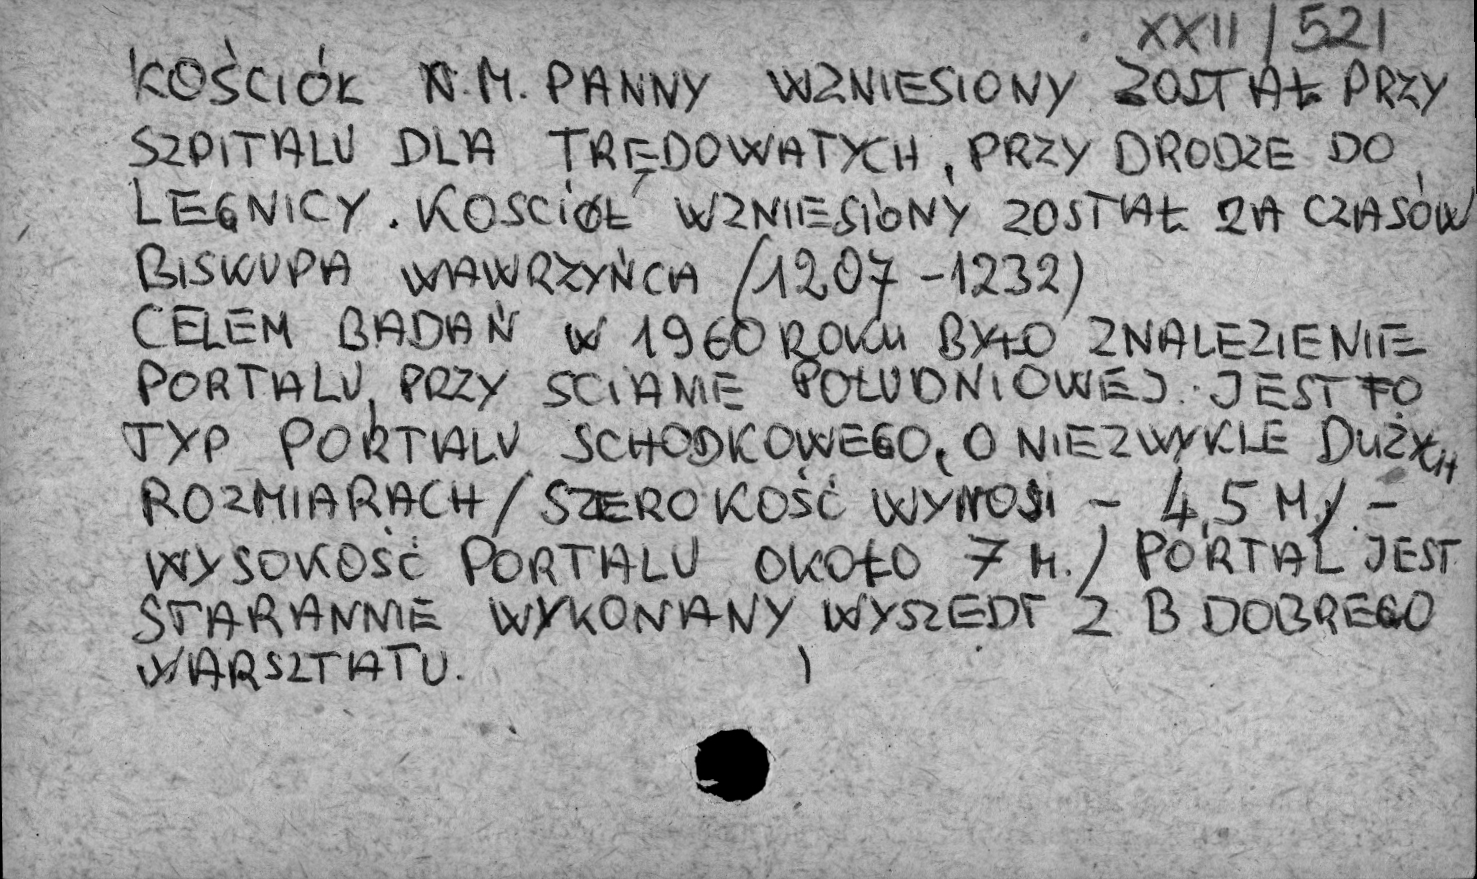 XXII/521
KOŚCIÓŁ N.M. PANNY WZNIESIONY ZOSTAŁ PRZY
SZPITALU DLA TRĘDOWATYCH, PRZY DRODZE DO
LEGNICY. KOSCIÓŁ WZNIESIONY ZOSTAŁ ZA CZASÓW
BISKUPA WAWRZYŃCA (1207-1232)
CELEM BADAŃ W 1960 ROKU BYŁO ZNALEZIENIE
PORTALU, PRZY SCIANIE POŁUDNIOWEJ. JEST TO
TYP PORTALU SCHODKOWEGO, O NIEZWYKLE DUŻYCH
ROZMIARACH / SZEROKOŚĆ WYNOSI - 4,5 M./. -
WYSOKOŚĆ PORTALU OKOŁO 7 M. / PORTAL JEST
STARANNIE WYKONANY WYSZEDŁ Z B DOBREGO
WARSZTATU.